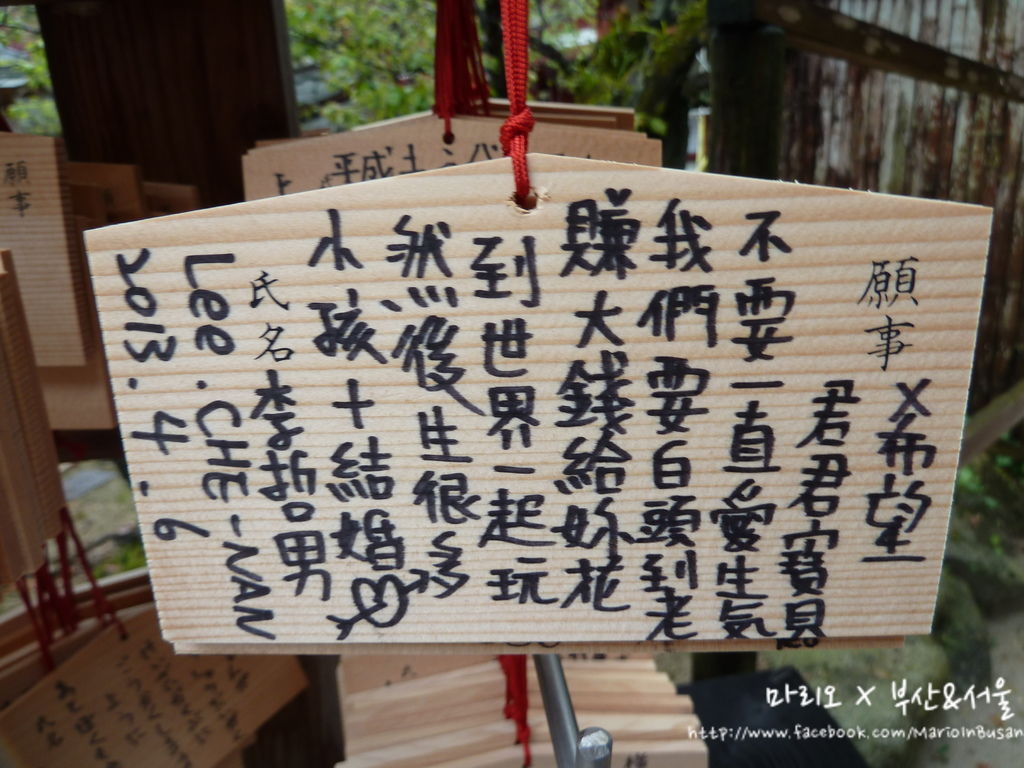 願事
X希望
君君寶貝
不要一直愛生気
我們要白頭到老
賺大錢給妳花
到世界一起玩
然後生很多
小孩十結婚
氏名 李哲男
Lee. CHE-NAN
2013.4.6
平成十
願事
마리오 X 부산&서울
http://www.facebook.com/MarioInBusan